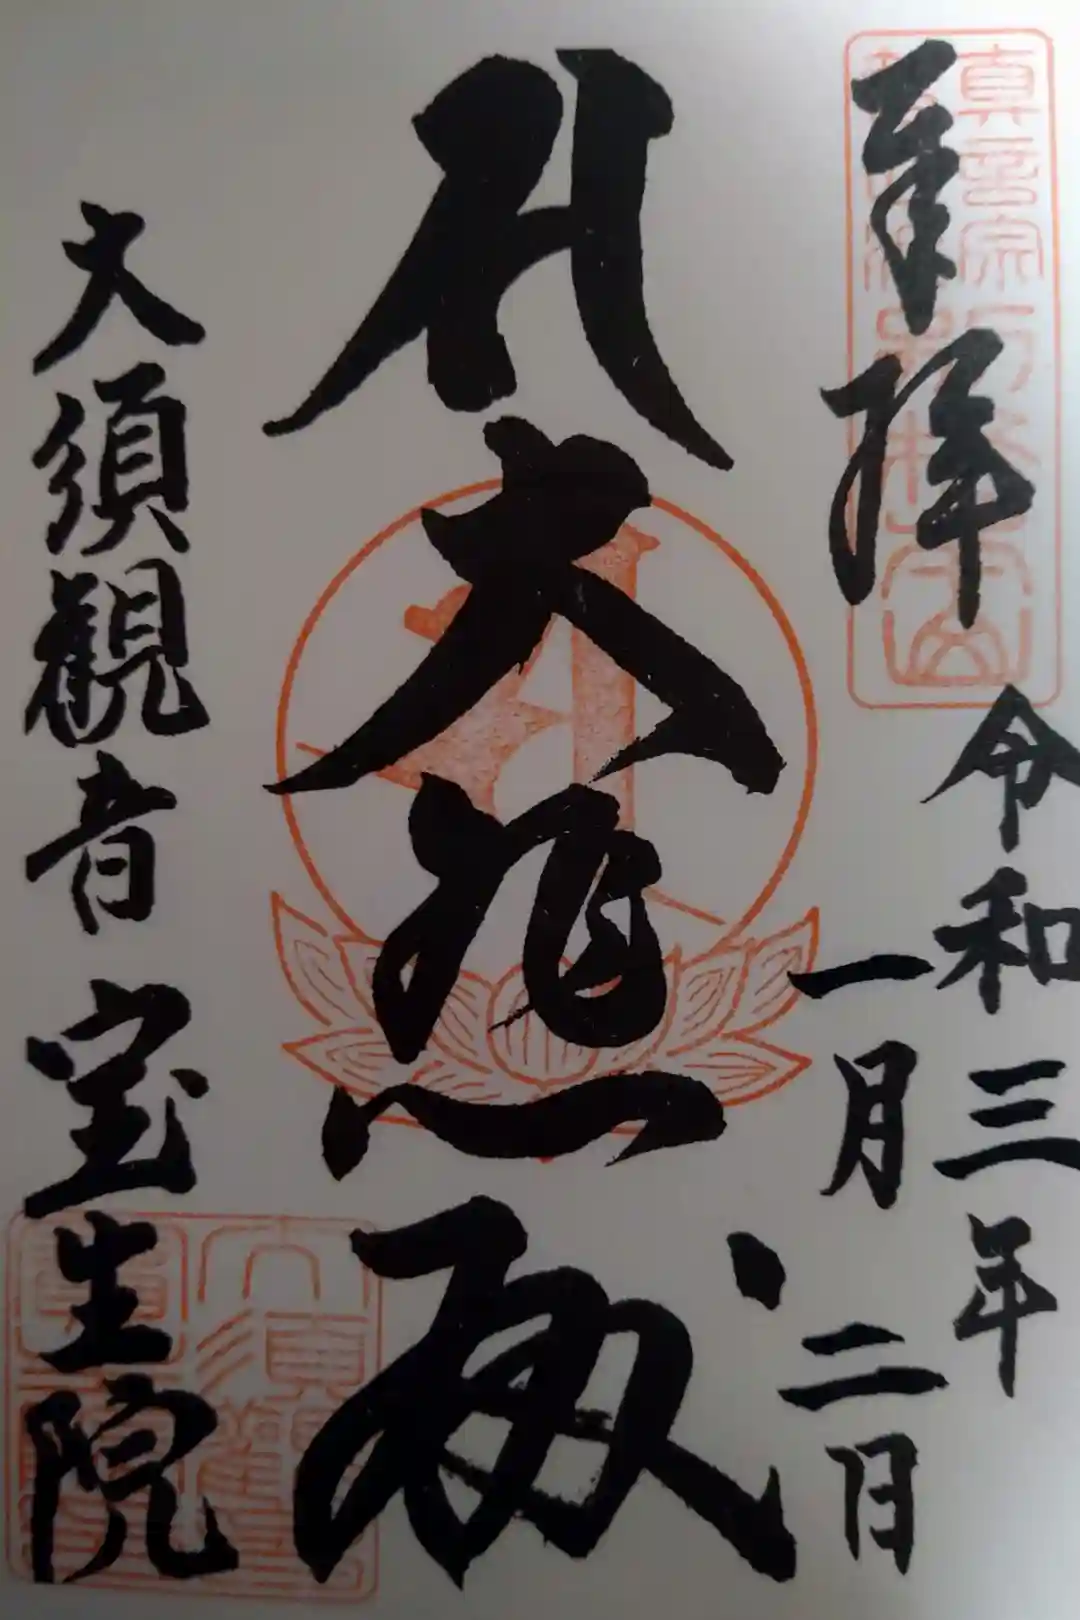 奉拝
令和三年
一月二日
大悲殿
大須観音
宝生院